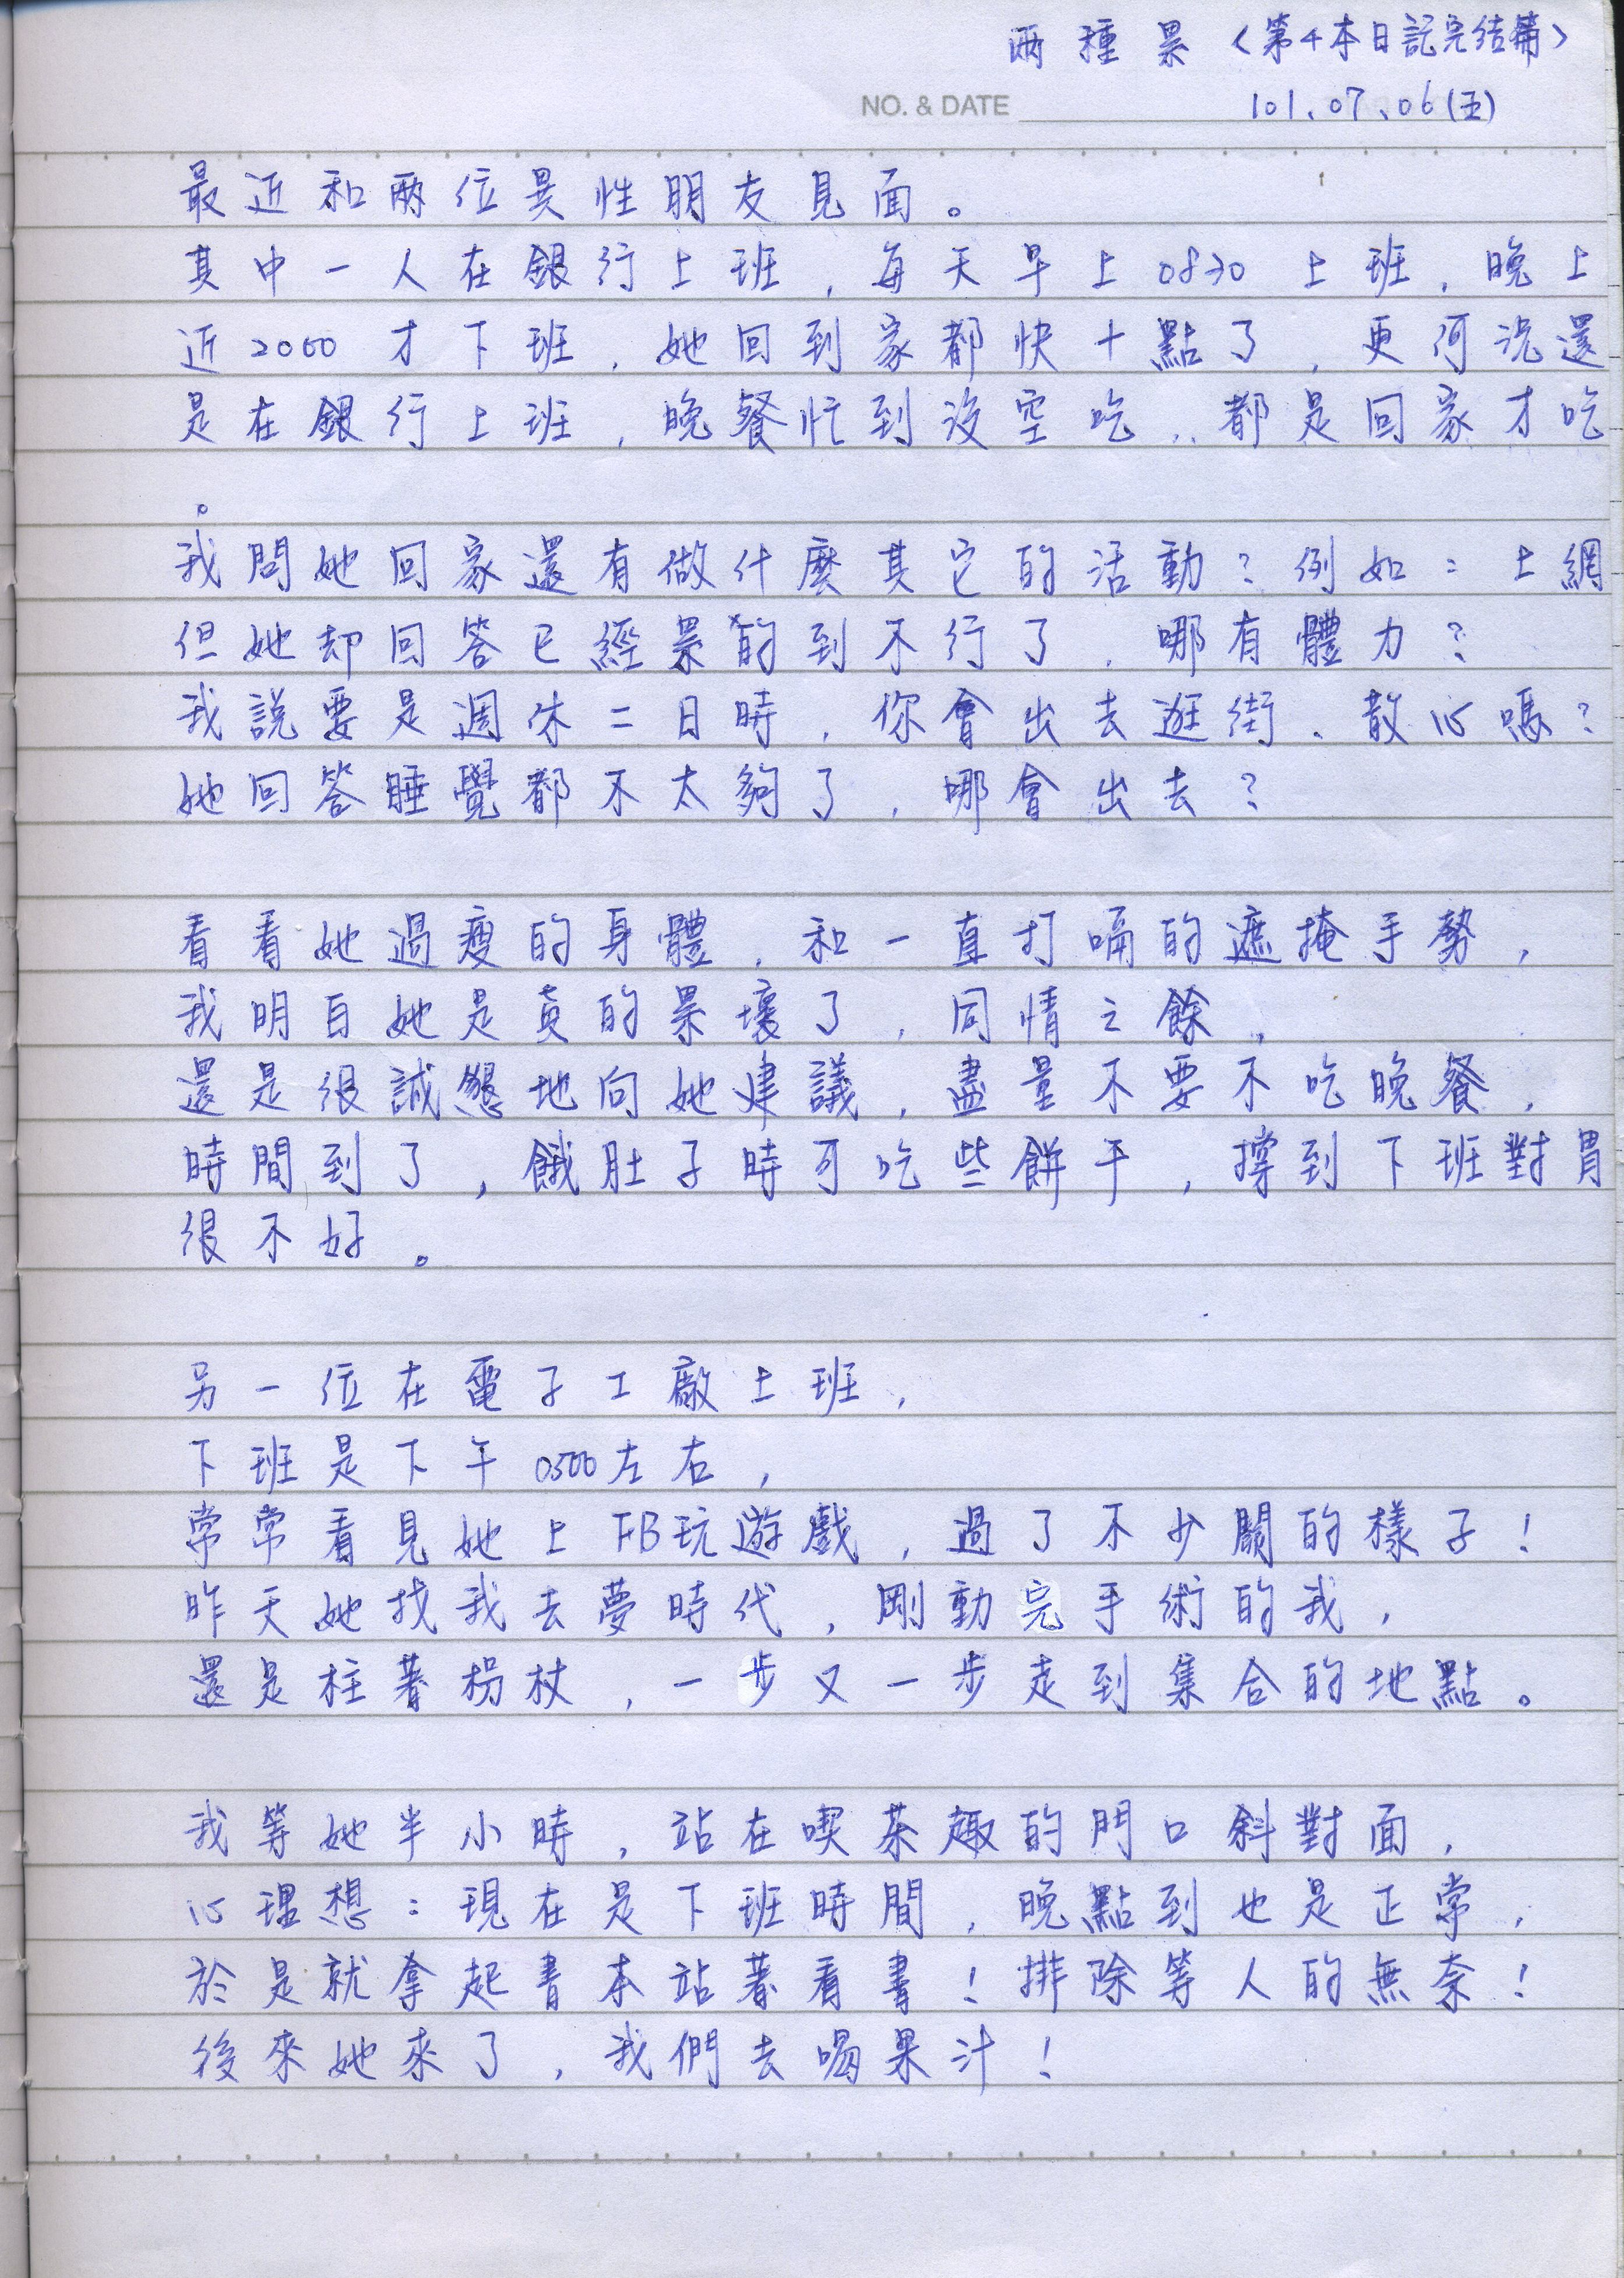 兩種累〈第4本日記完結篇〉
NO. & DATE 101.07.06(五)
最近和兩位異性朋友見面。
其中一人在銀行上班,每天早上0830上班,晚上
近2000才下班,她回到家都快十點了,更何況還
是在銀行上班,晚餐忙到沒空吃,都是回家才吃
。
我問她回家還有做什麼其它的活動?例如:上網
但她却回答已經累的到不行了,哪有體力?
我說要是週休二日時,你會出去逛街、散心嗎?
她回答睡覺都不太夠了,哪會出去?
看看她過瘦的身體,和一直打嗝的遮掩手勢,
我明白她是真的累壞了,同情之餘,
還是很誠懇地向她建議,盡量不要不吃晚餐,
時間到了,餓肚子時可吃些餅干,撐到下班對胃
很不好。
另一位在電子工廠上班,
下班是下午0500左右,
常常看見她上FB玩遊戲,過了不少關的樣子!
昨天她找我去夢時代,剛動完手術的我,
還是柱著柺杖,一步又一步走到集合的地點。
我等她半小時,站在喫茶趣的門口斜對面,
心理想:現在是下班時間,晚點到也是正常,
於是就拿起書本站著看書!排除等人的無奈!
後來她來了,我們去喝果汁!